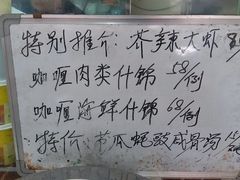 特别推介：芥辣大虾
咖喱肉类什锦 58/例
咖喱海鲜什锦 68/例
特价：节瓜蚝豉咸骨汤